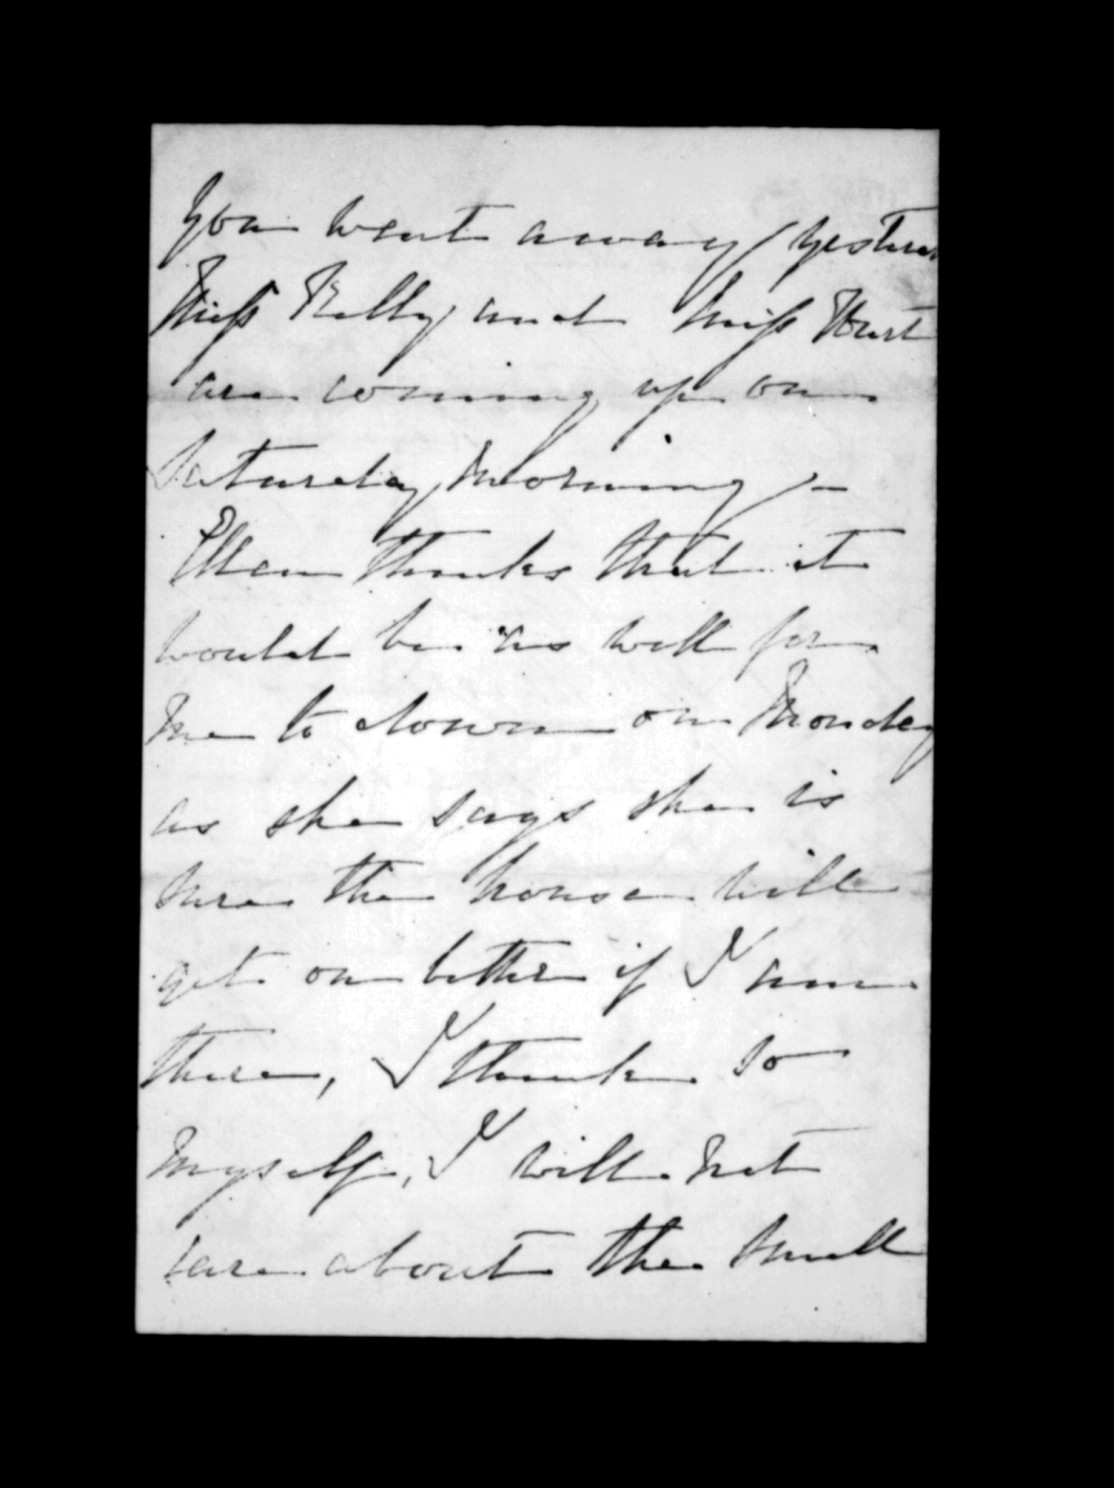 you went away yester
Miss Kelly and Miss Hurst
are coming up on
Saturday morning -
Ellen thinks that it
would be as well for
me to down on Monday
as she says she is
sure the house will
get on better if I am
there, I think so
myself, I will not
care about the smell